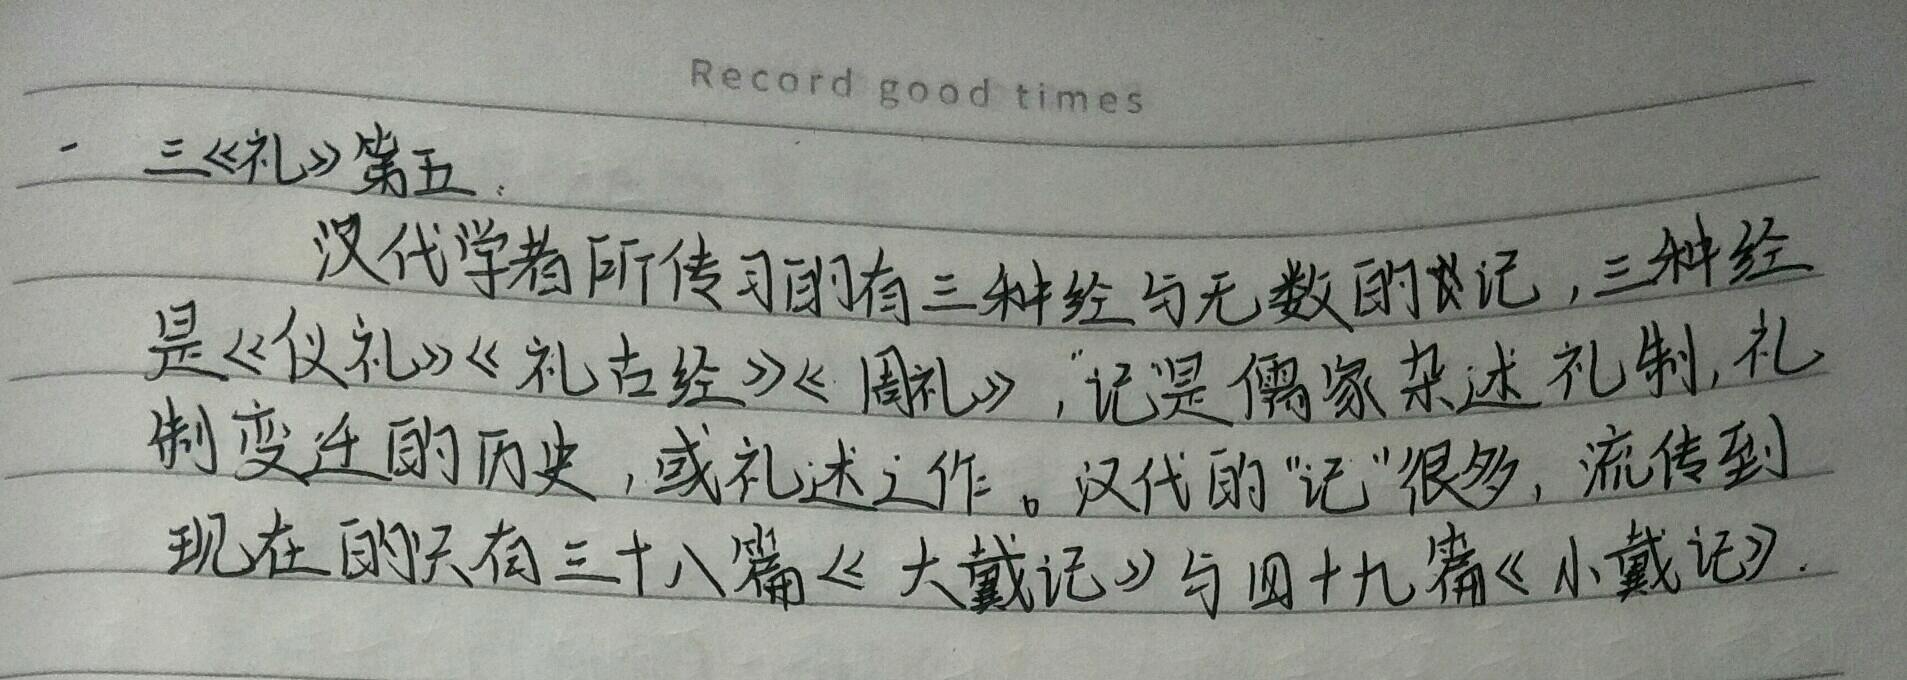 Record good times
- 三《礼》第五.
汉代学者所传习的有三种经与无数的记,三种经
是《仪礼》《礼古经》《周礼》,"记是儒家杂述礼制,礼
制变迁的历史,或礼述之作。汉代的"记"很多,流传到
现在的只有三十八篇《大戴记》与四十九篇《小戴记》.